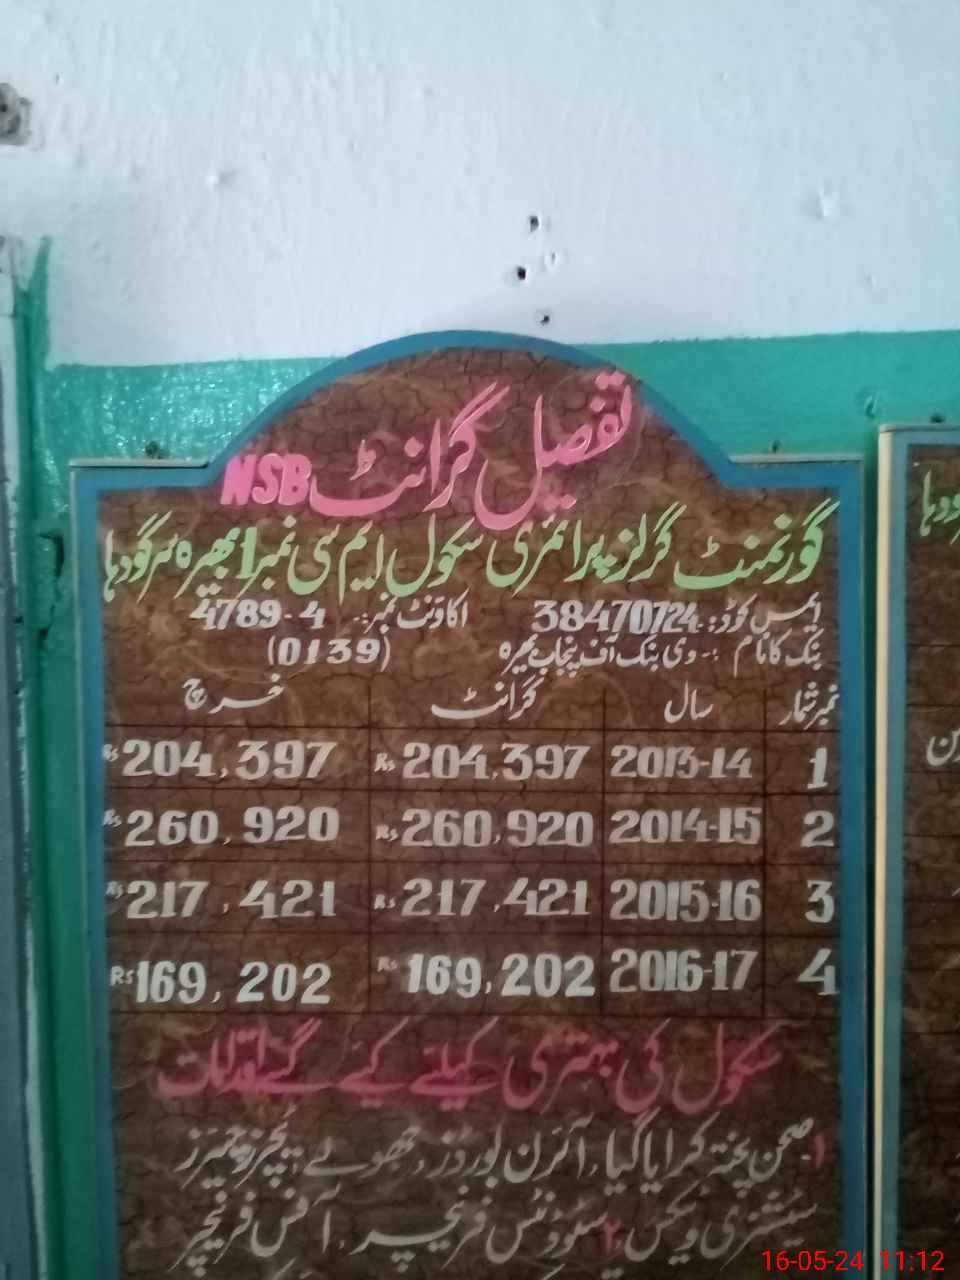 تفصیل گرانٹ NSB
گورنمنٹ گرلز پرائمری سکول ایم سی نمبر 1 بھیرہ سرگودہا
ایمس کوڈ:- 38470724 اکاؤنٹ نمبر:- 4789-4
بنک کا نام :- دی بنک آف پنجاب بھیرہ (0139)
نمبر شمار سال گرانٹ خرچ
1 2013-14 Rs 204,397 Rs 204,397
2 2014-15 Rs 260,920 Rs 260,920
3 2015-16 Rs 217,421 Rs 217,421
4 2016-17 Rs 169,202 Rs 169,202
سکول کی بہتری کیلئے کیے گئے اقدامات
1- صحن پختہ کرایا گیا، آئرن بورڈز، جھولے، ٹیچرز چیئرز
سٹوڈنٹس فرنیچر، آفس فرنیچر
16-05-24 11:12